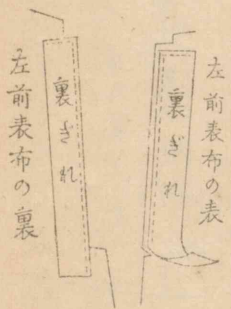 左前表布の表
裏ぎれ
裏ぎれ
左前表布の裏